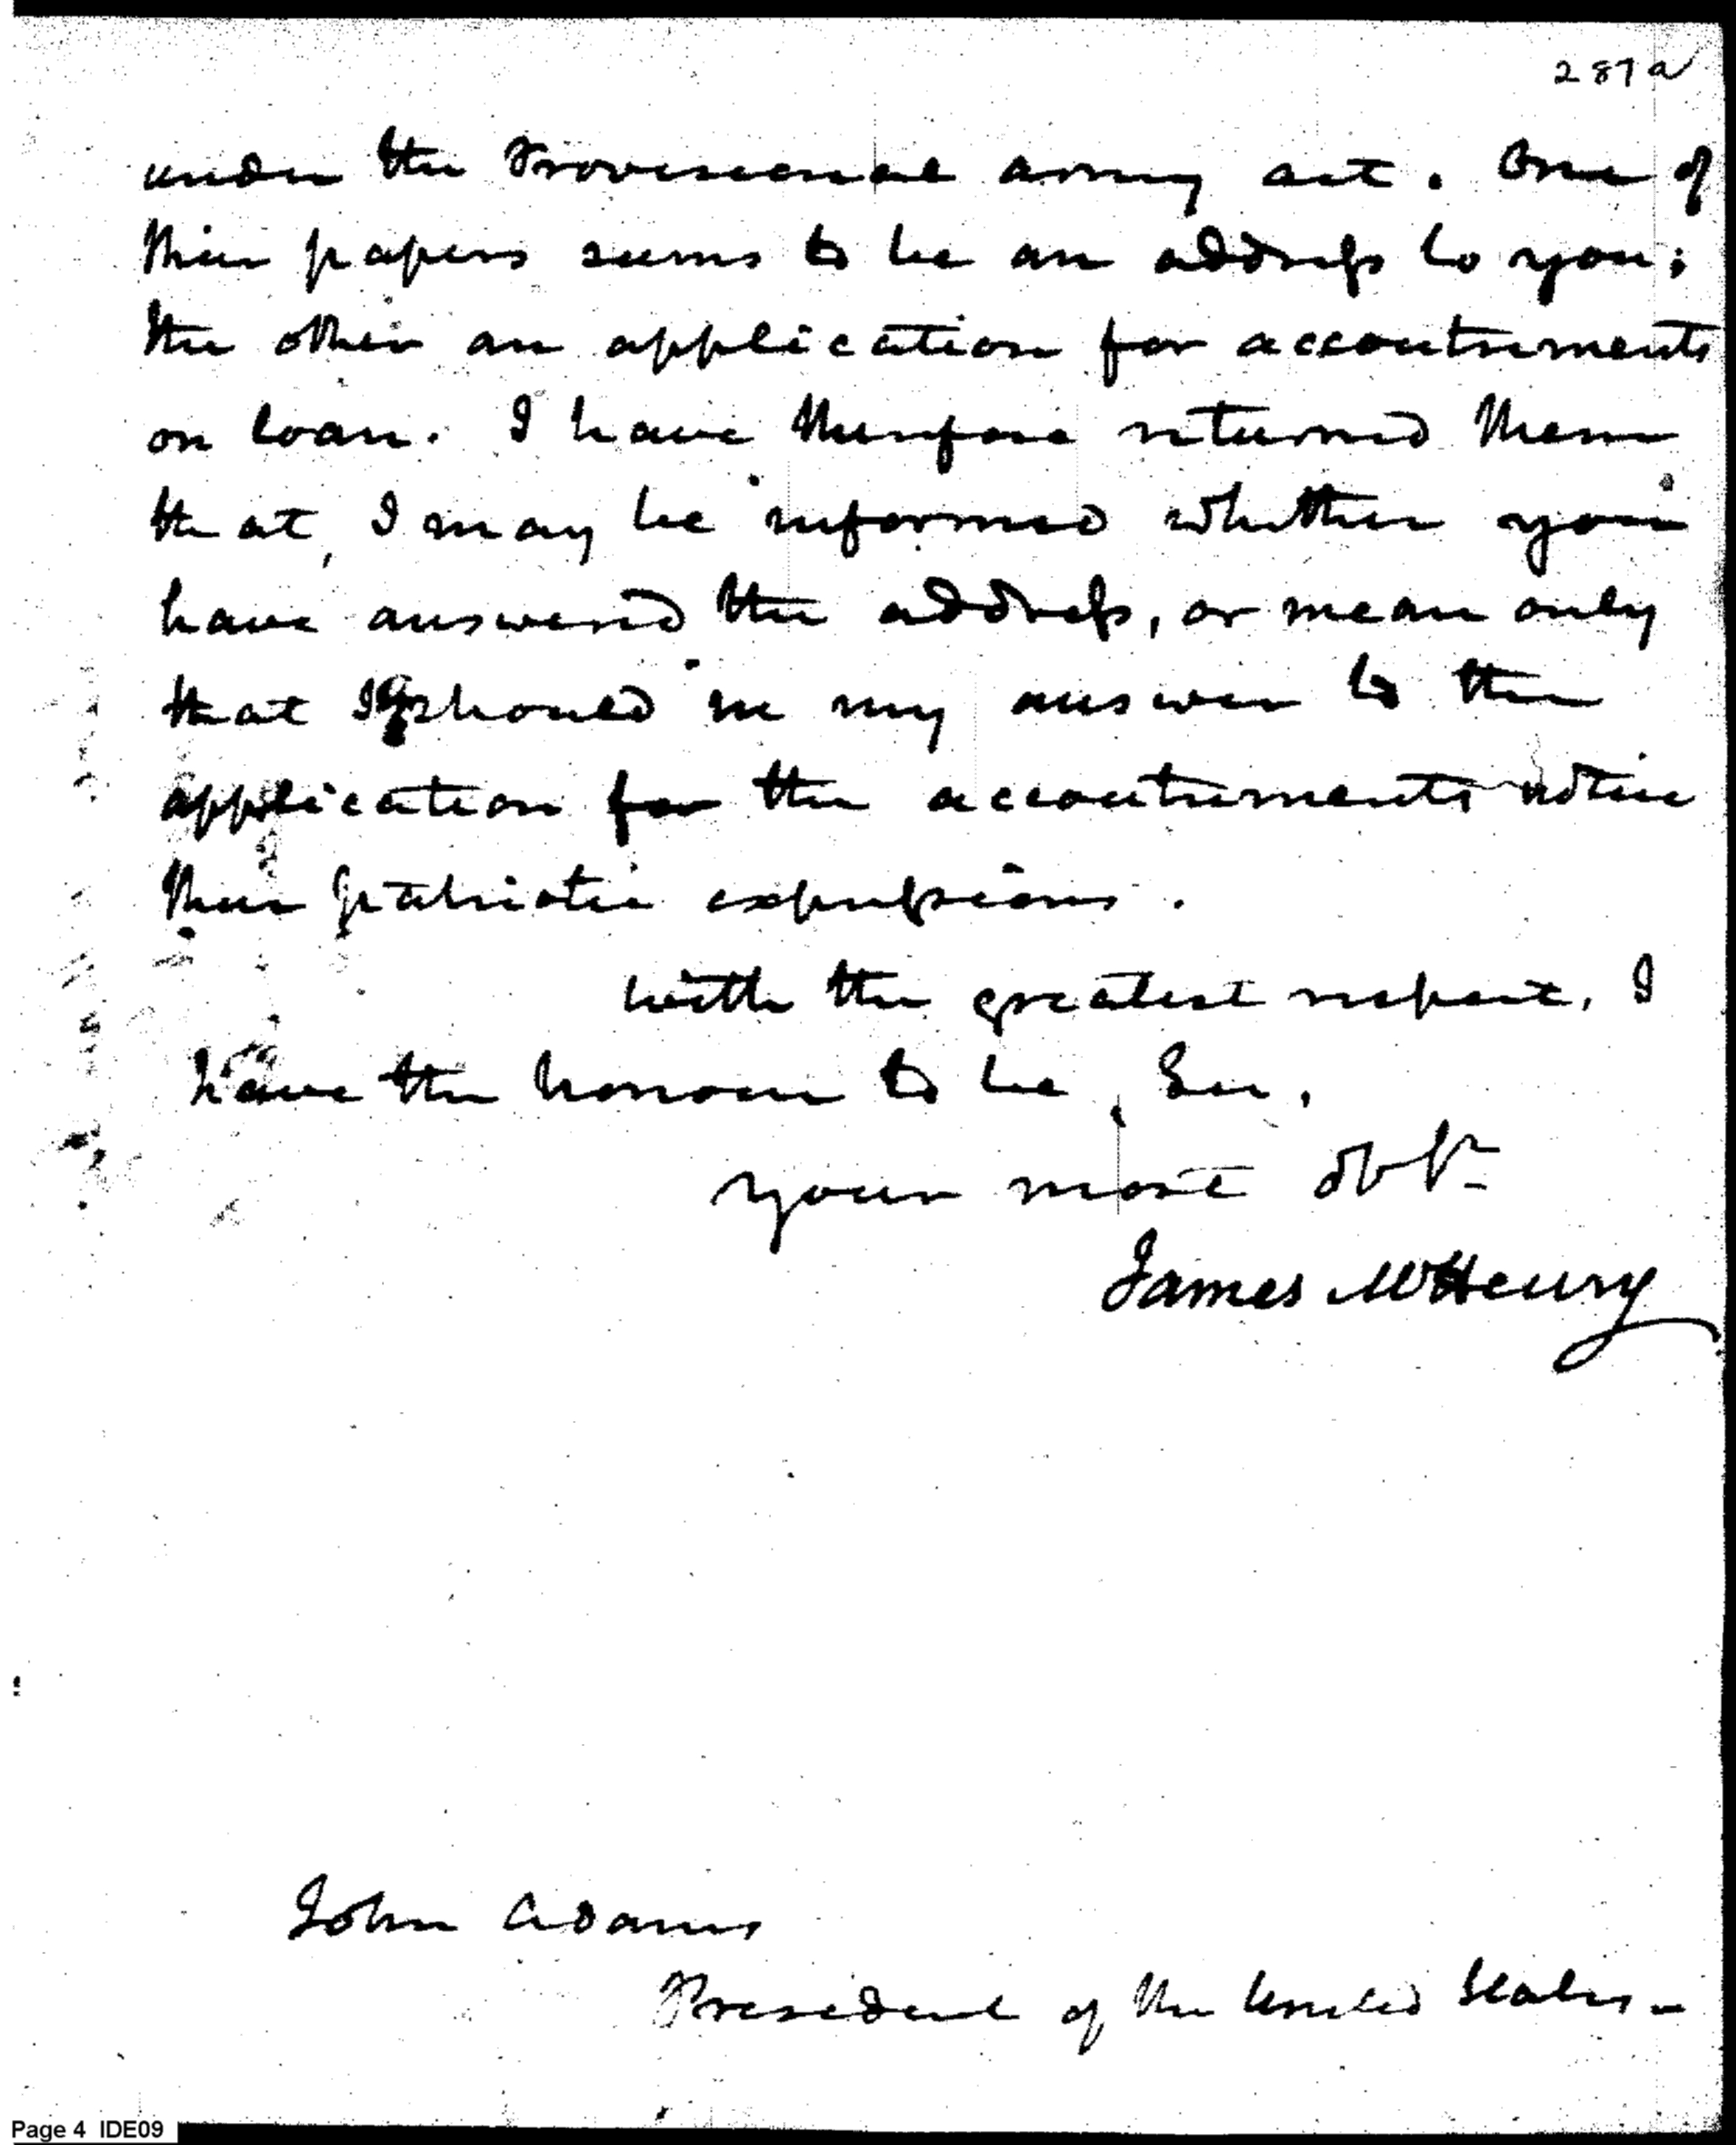 287a
under the Provisional army act. One of
their papers seems to be an address to you;
the other an application for accoutrements
on loan. I have therefore returned them
that, I may be informed whether you
have answered the address, or mean only
that I should in my answer to the
application for the accoutrements notice
their patriotic expressions.
with the greatest respect, I
have the honour to be, Sir,
your most obt
James McHenry
John Adams
President of the United States-
Page 4 IDE09